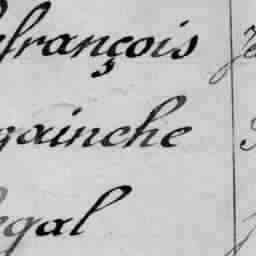 efrançois
gainche
egal